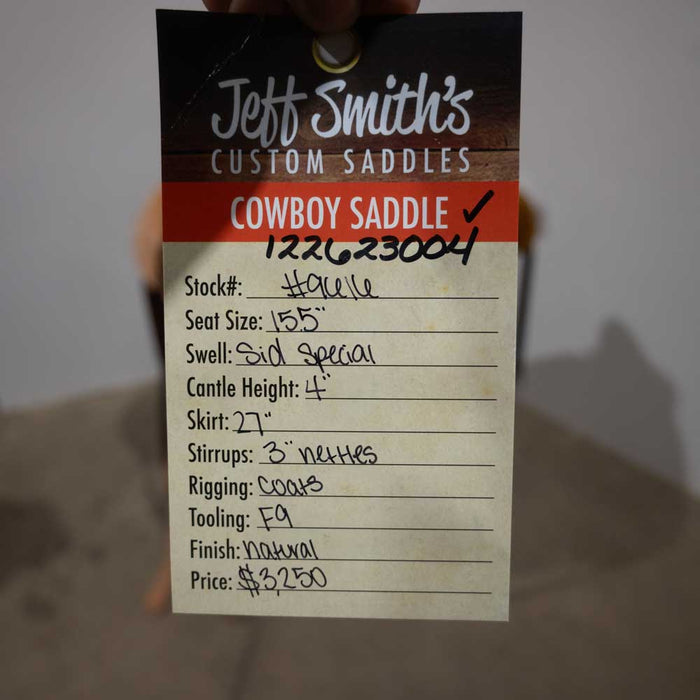 Jeff Smith's
CUSTOM SADDLES
COWBOY SADDLE ✓
122623004
Stock#: #9616
Seat Size: 15.5"
Swell: Sid Special
Cantle Height: 4"
Skirt: 27"
Stirrups: 3" nettles
Rigging: Coats
Tooling: F9
Finish: natural
Price: $3,250